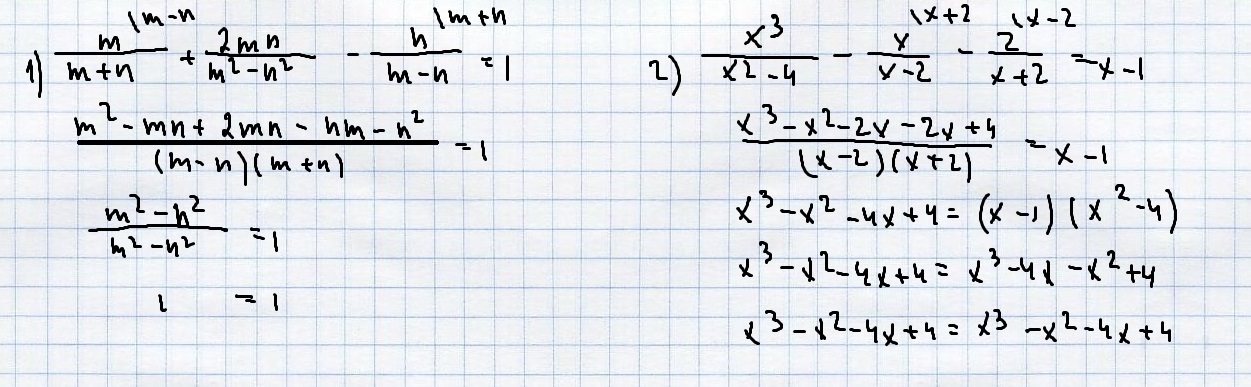 1) m/(m+n) \m-n + 2mn/(m²-n²) - n/(m-n) \m+n = 1
(m²-mn+2mn-nm-n²)/((m-n)(m+n)) = 1
(m²-n²)/(m²-n²) = 1
1 = 1
2) x³/(x²-4) - x/(x-2) \x+2 - 2/(x+2) \x-2 = x-1
(x³-x²-2x-2x+4)/((x-2)(x+2)) = x-1
x³-x²-4x+4 = (x-1)(x²-4)
x³-x²-4x+4 = x³-4x-x²+4
x³-x²-4x+4 = x³-x²-4x+4